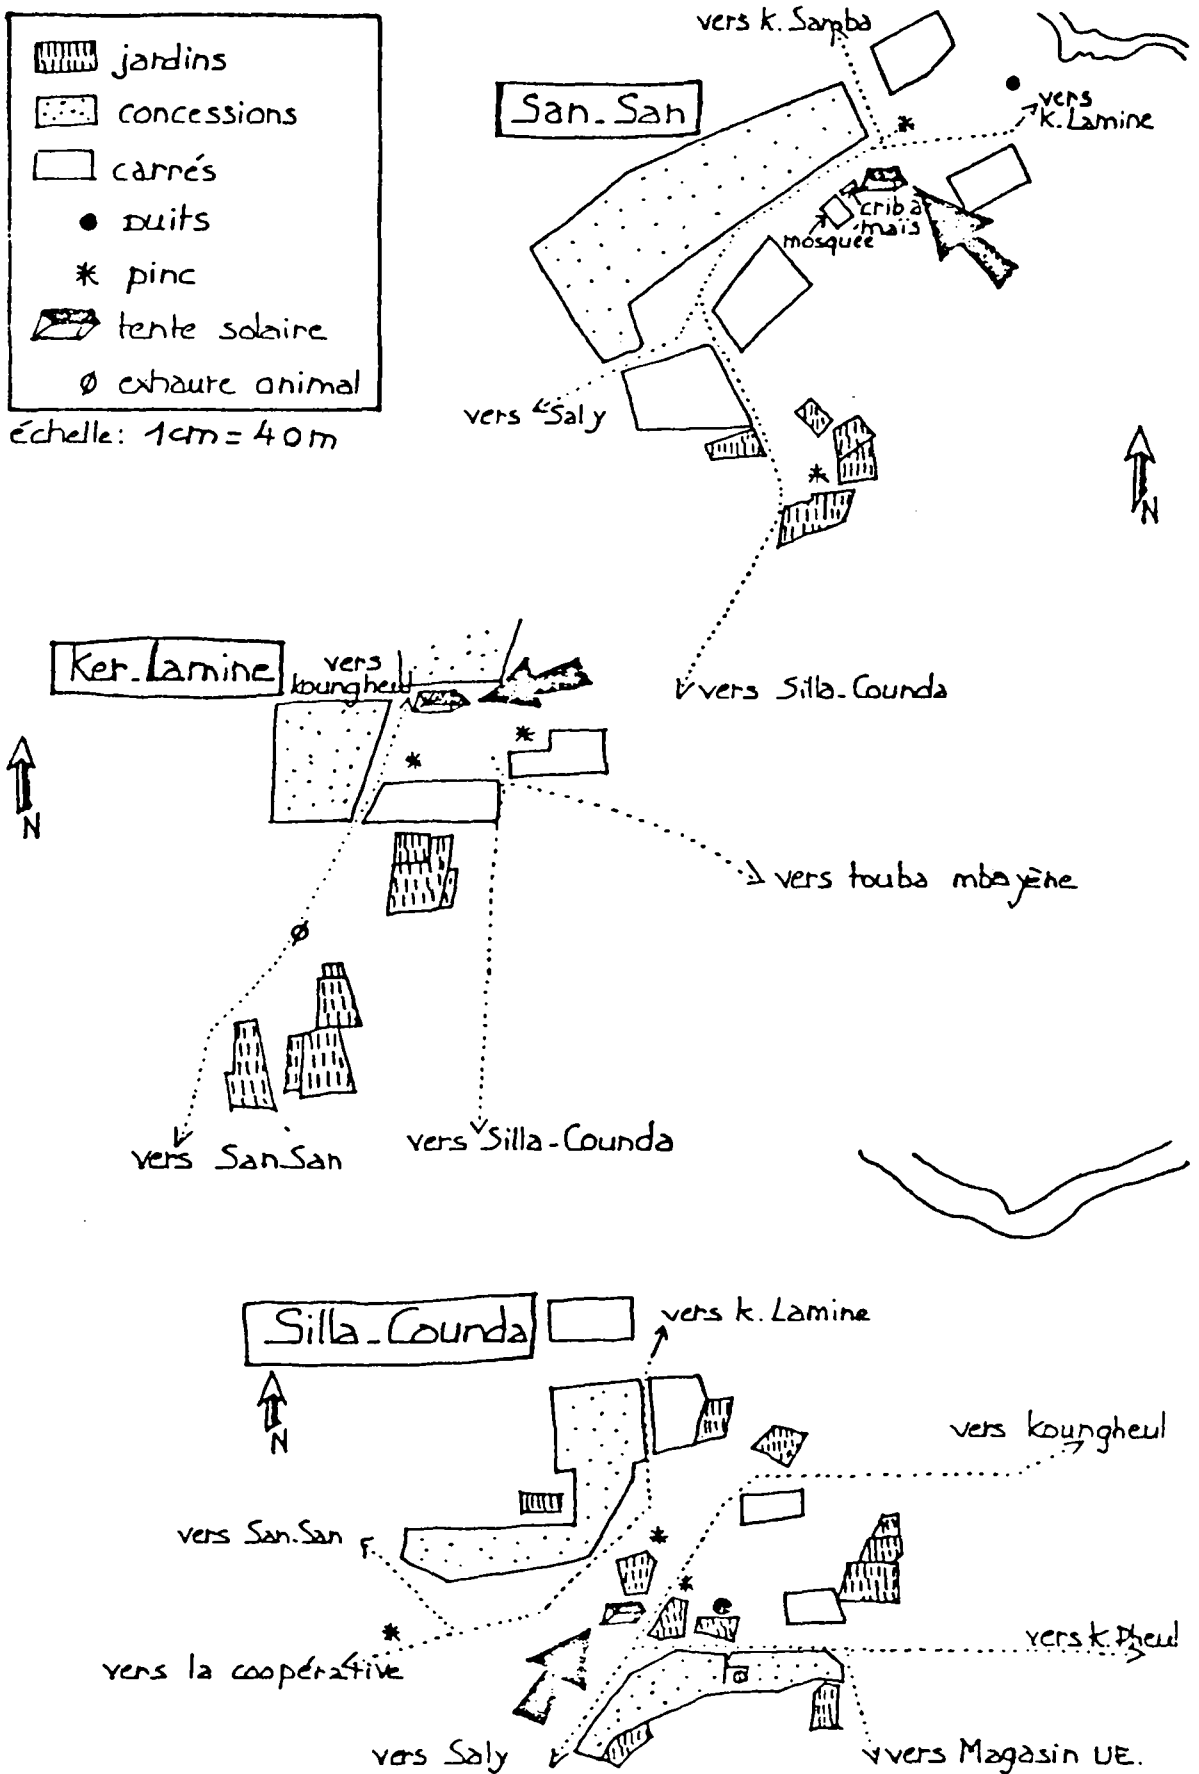 jardins
concessions
carrés
puits
pinc
tente solaire
exhaure animal
échelle: 1cm = 40m
San-San
vers k. Samba
vers
K. Lamine
crib à
maïs
mosquée
vers Saly
N
vers Silla-Counda
Ker-Lamine
vers
koungheul
N
vers touba mbayène
vers San-San
vers Silla-Counda
Silla-Counda
vers k. Lamine
N
vers koungheul
vers San-San
vers la coopérative
vers k. Dheul
vers Saly
vers Magasin UE.